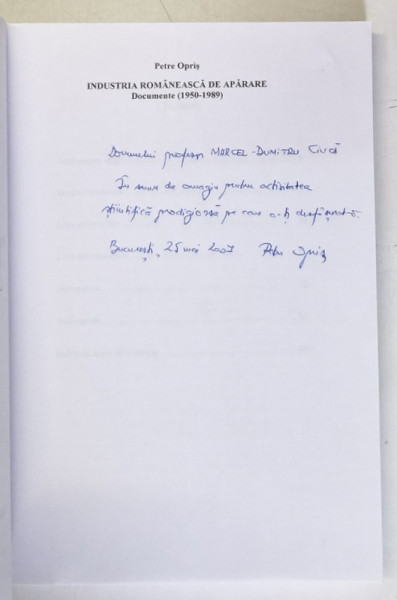 Petre Opriș
INDUSTRIA ROMÂNEASCĂ DE APĂRARE
Documente (1950-1989)
Domnului profesor MARCEL-DUMITRU CIUCĂ
În semn de omagiu pentru activitatea
științifică prodigioasă pe care a-ți desfășurat-o.
București, 25 mai 2007 Petre Opriș